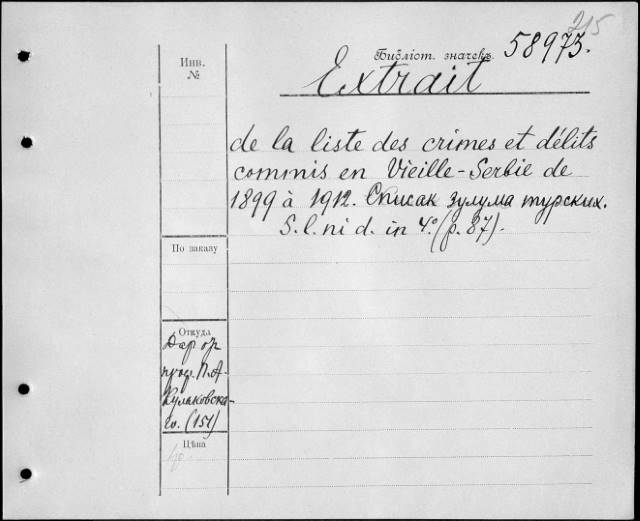 215
Библіот. значекъ 58973.
Инв.
№
Extrait
de la liste des crimes et délits
commis en Vieille-Serbie de
1899 à 1912. Списак зулума турских.
S. l. ni d. in 4º. (p. 87).
По заказу
Откуда
Дар от
проф. П. А.
Кулаковска-
го. (151)
Цѣна